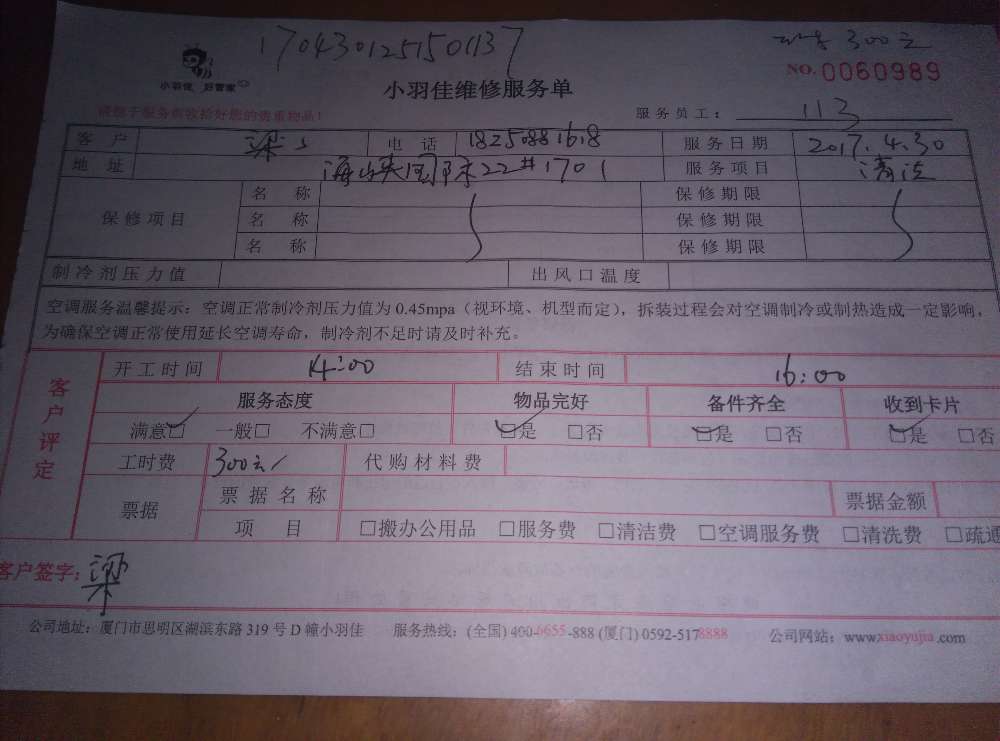 1704301251501137
300元
NO. 0060989
小羽佳 好管家
小羽佳维修服务单
请您于服务前收拾好您的贵重物品！
服务员工： 113
客户 梁 电话 18250881618 服务日期 2017.4.30
地址 22#1701 服务项目 清洗
保修项目 名称 保修期限
名称 保修期限
名称 保修期限
制冷剂压力值 出风口温度
空调服务温馨提示：空调正常制冷剂压力值为 0.45mpa（视环境、机型而定），拆装过程会对空调制冷或制热造成一定影响，
为确保空调正常使用延长空调寿命，制冷剂不足时请及时补充。
客户评定
开工时间 14:00 结束时间 16:00
服务态度 物品完好 备件齐全 收到卡片
满意□ 一般□ 不满意□ □是 □否 □是 □否 □是 □否
工时费 300元 代购材料费
票据 票据名称 票据金额
项目 □搬办公用品 □服务费 □清洁费 □空调服务费 □清洗费 □疏通
客户签字： 梁
公司地址：厦门市思明区湖滨东路 319 号 D 幢小羽佳 服务热线：(全国) 400-6655-888 (厦门) 0592-5178888 公司网站：www.xiaoyujia.com